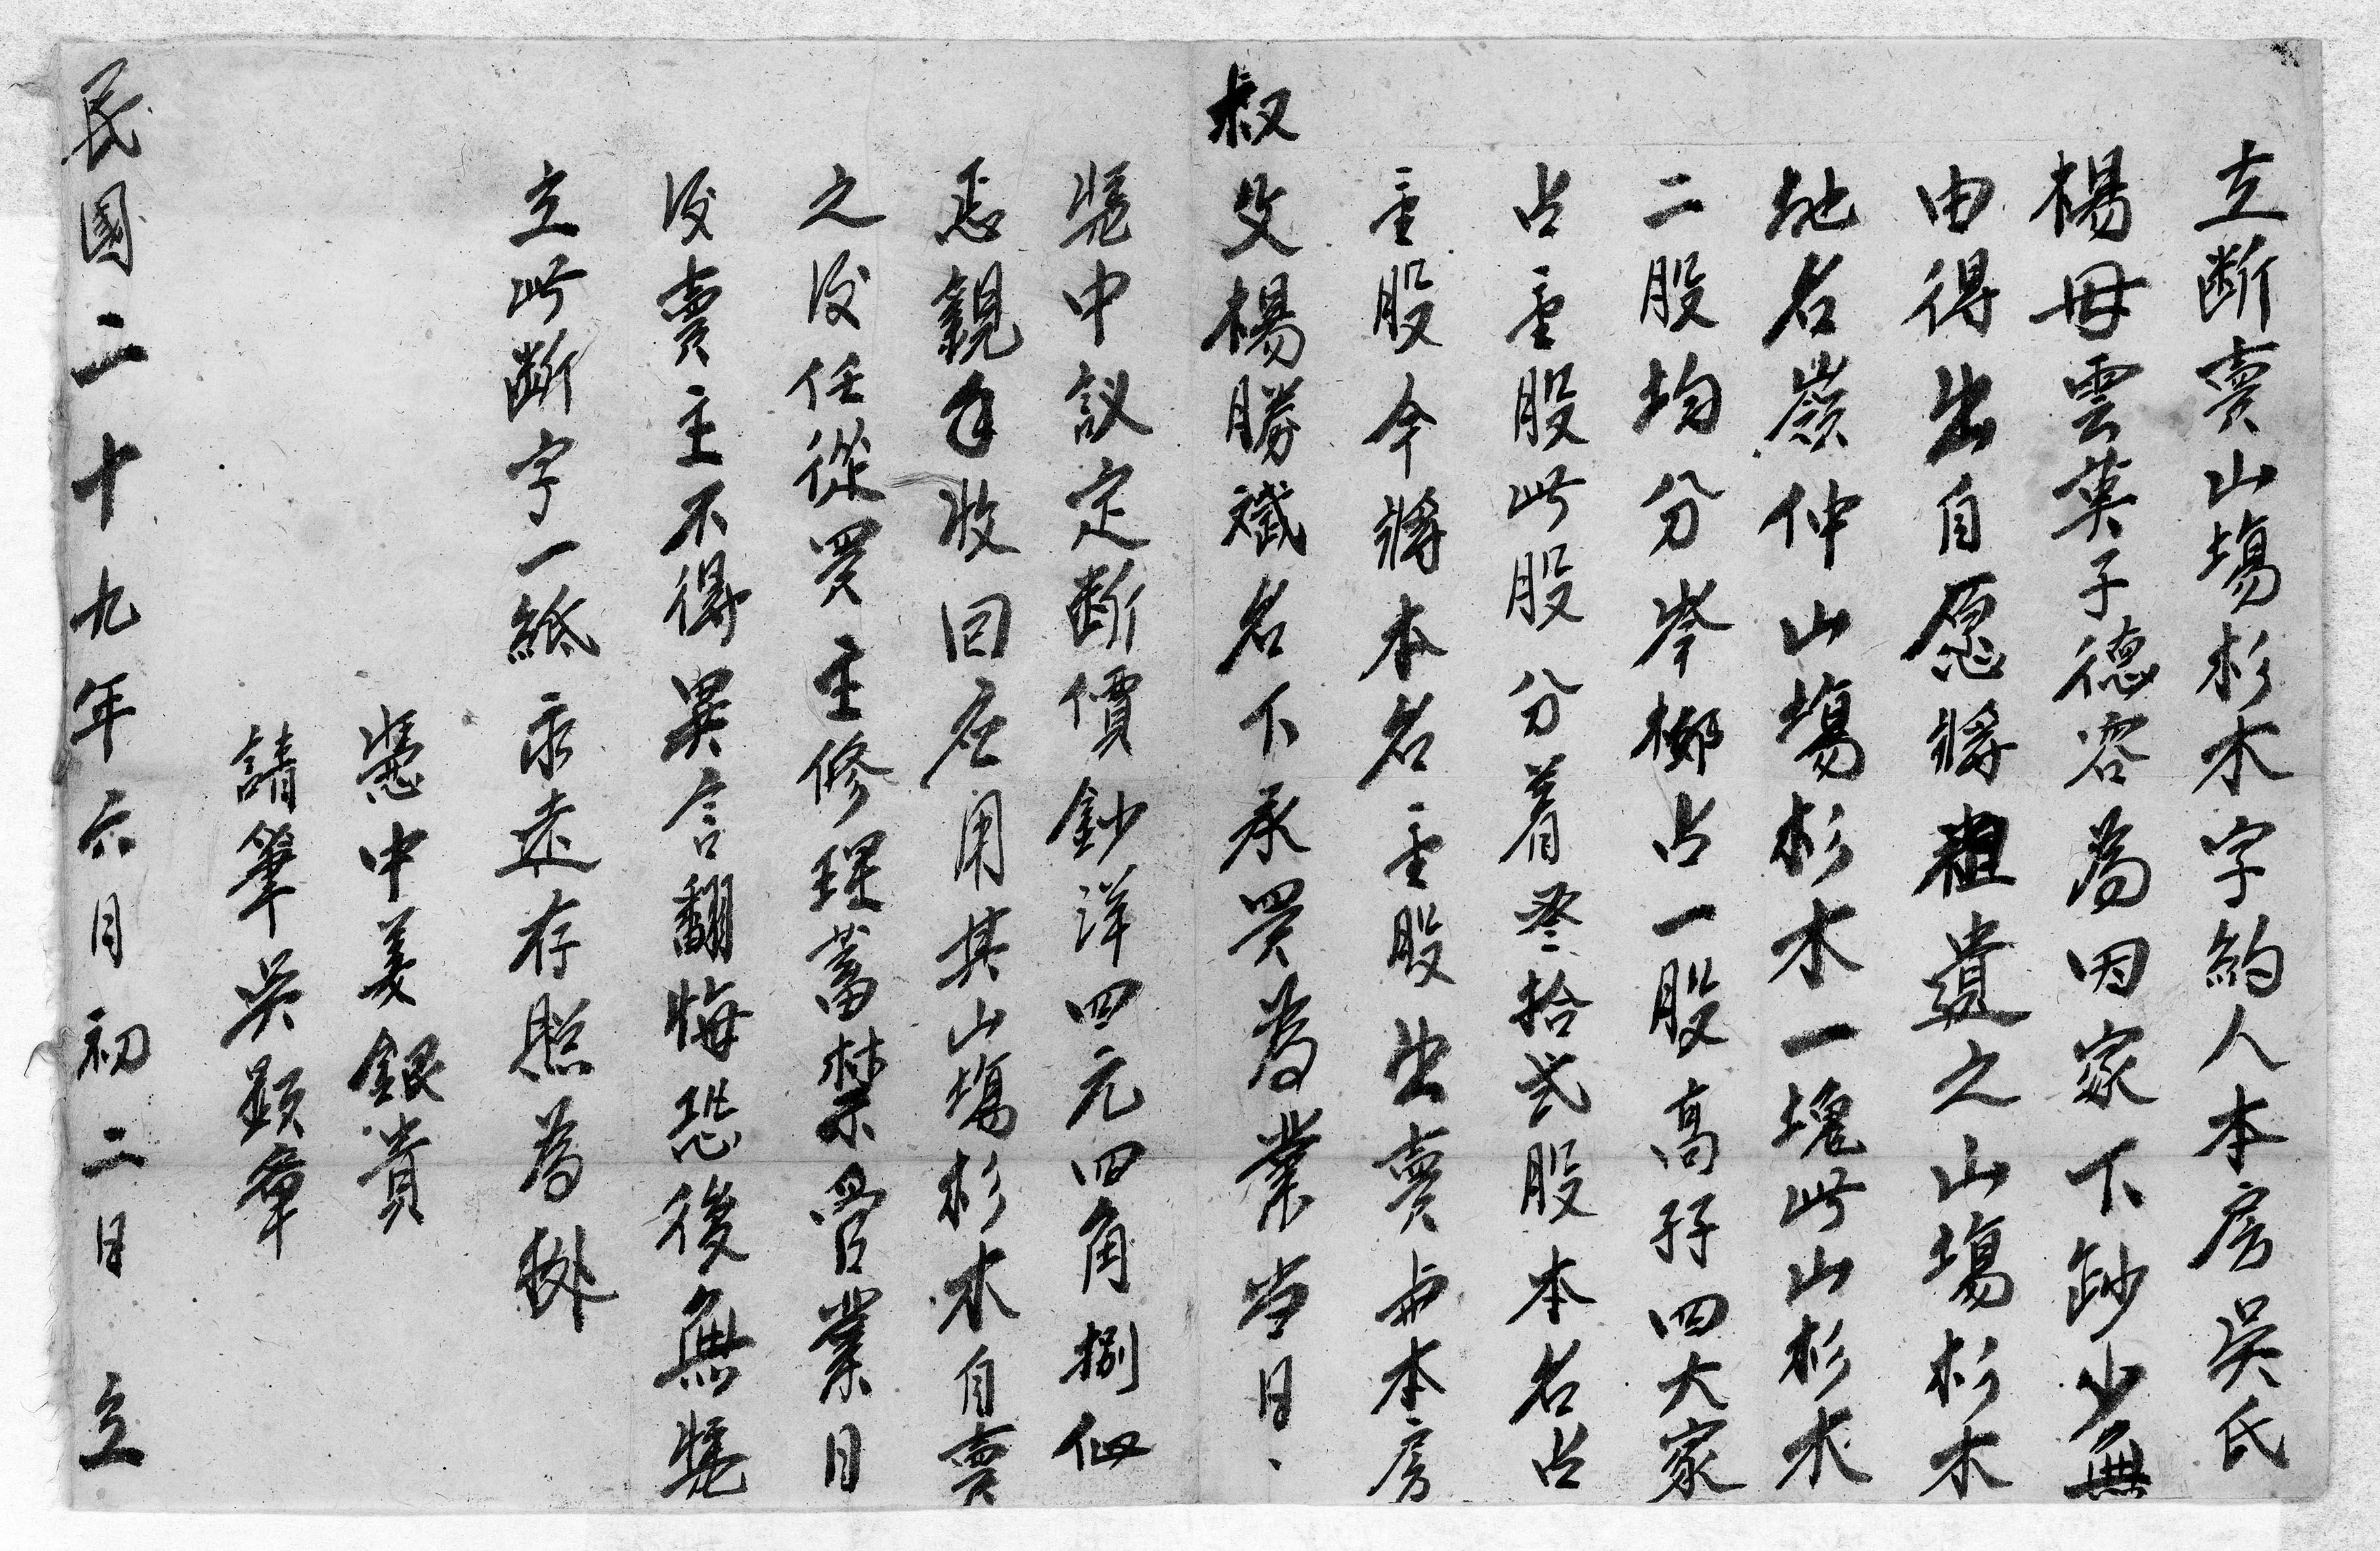 立断賣山塲杉木字約人本房吳氏
楊母雲英子德容為因家下鈔少無
由得出自愿將祖遺之山塲杉木
地名嶺仲山塲杉木一塊此山杉木
二股均分岑榔占一股高孖四大家
占壹股此股分着叁拾弍股本名占
壹股今將本名壹股出賣与本房
叔父楊勝斌名下承買為業当日、
凴中議定断價鈔洋四元四角捌仙
親手收回應用其山塲杉木自賣
之後任從買主修理蓄禁管業日
後賣主不得異言翻悔恐後無凴
立此断字一紙永遠存照為據
凴中姜銀貴
請筆吳顕章
民國二十九年六月初二日 立